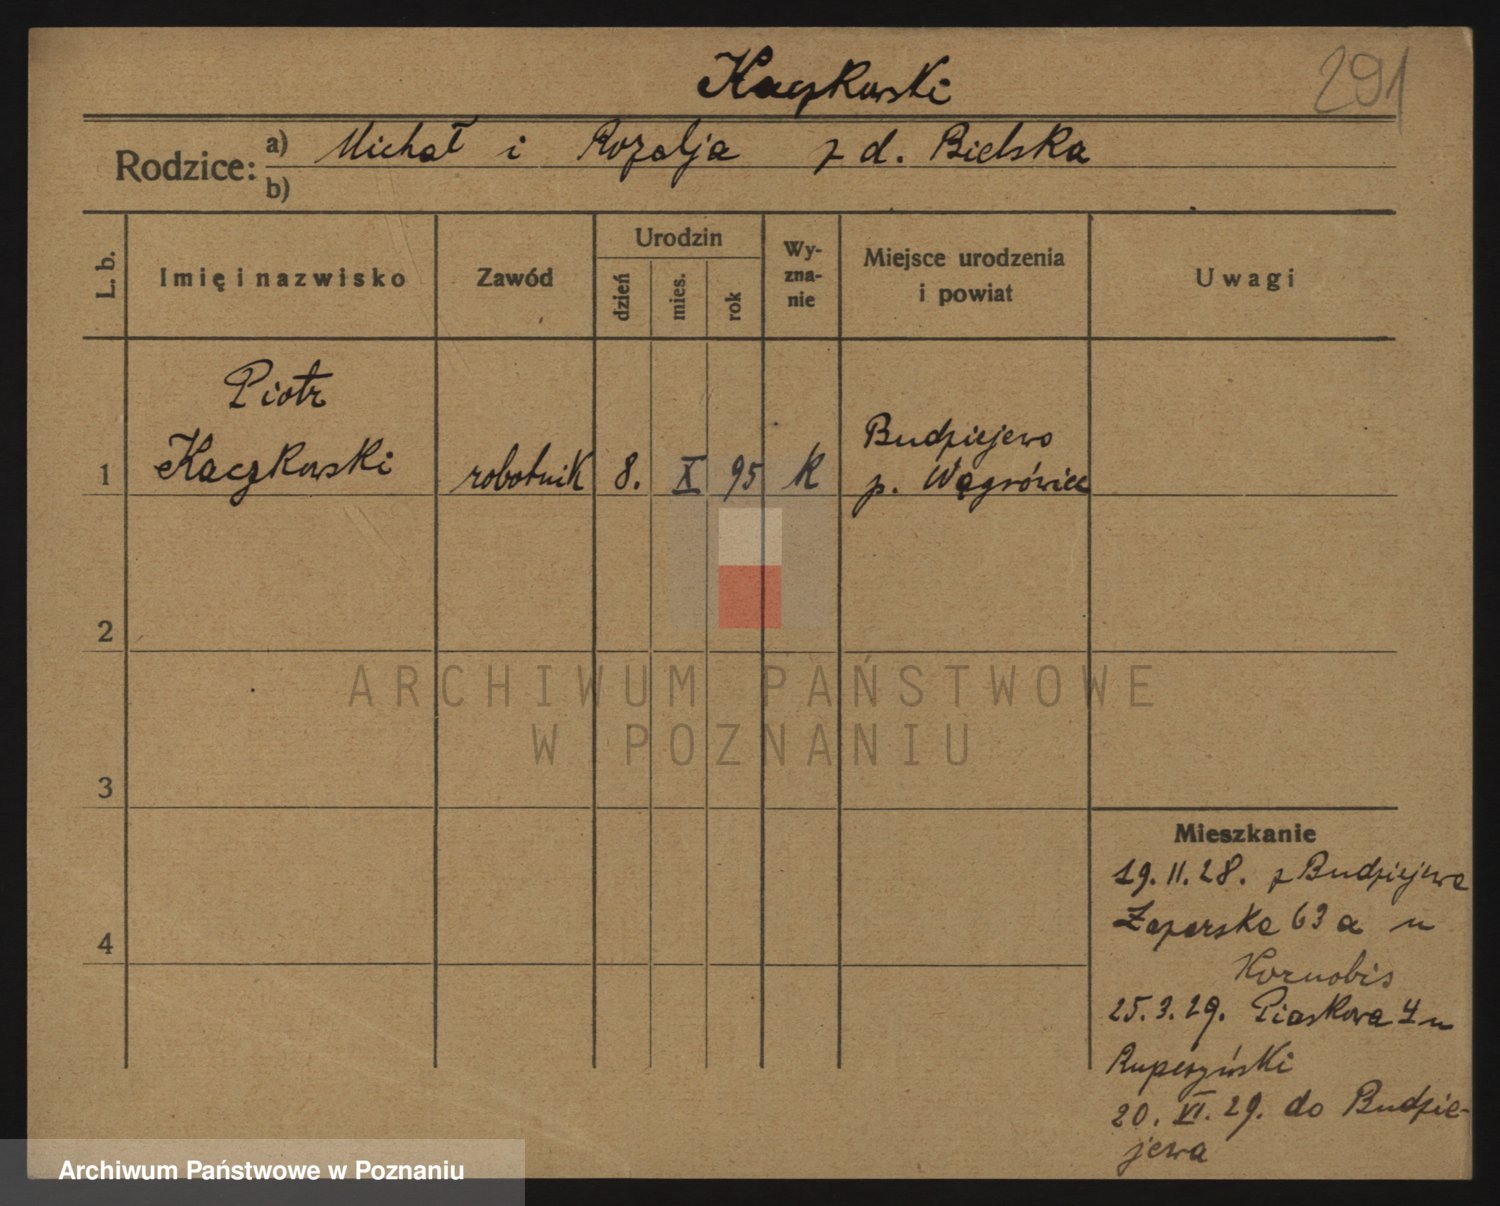 Kaczkowski
291
Rodzice:
a) Michał i Rozalja z d. Bielska
b)
L. b.
Imię i nazwisko
Zawód
Urodzin
dzień
mies.
rok
Wy-
zna-
nie
Miejsce urodzenia
i powiat
Uwagi
Piotr
1 Kaczkowski robotnik 8. X 95 k
Budziejewo
p. Wągrówiec
2
3
4
Mieszkanie
19. II. 28. z Budziejewa
63 a u
Kornobis
25. 3. 29. Piaskowa 4 u
20. VI. 29. do Budzie-
jewa
ARCHIWUM PAŃSTWOWE
W POZNANIU
Archiwum Państwowe w Poznaniu